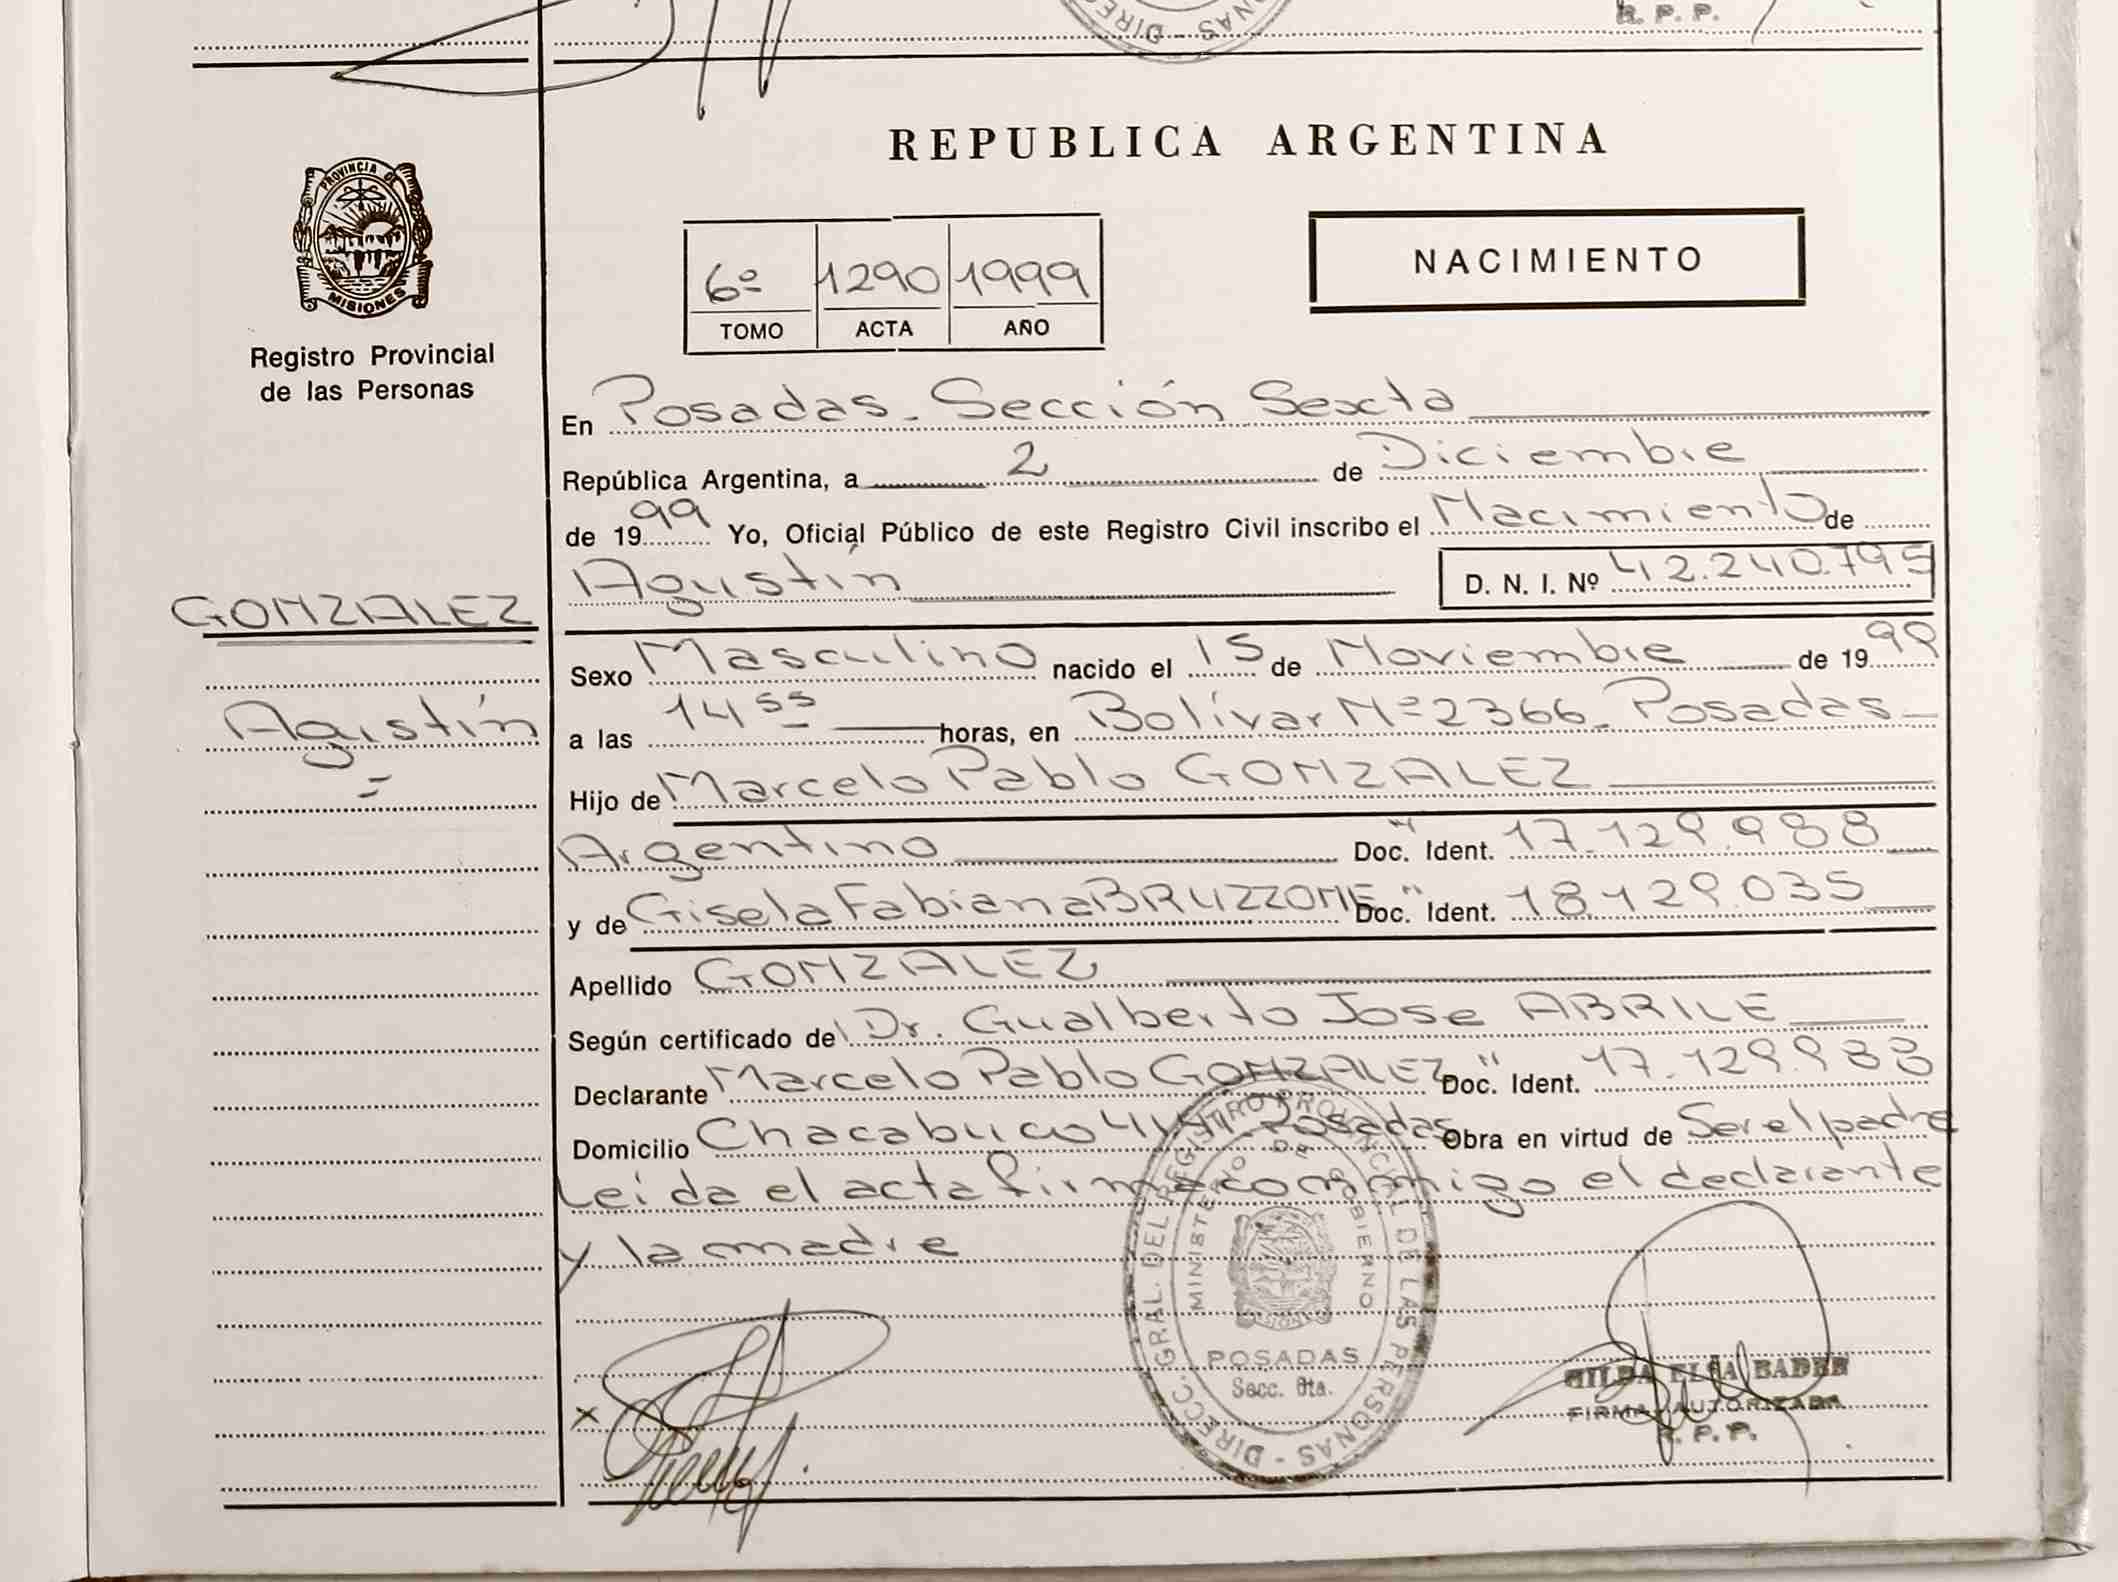 R. P. P.
DIREC - NAS
REPUBLICA ARGENTINA
PROVINCIA DE
MISIONES
NACIMIENTO
6º 1290 1999
TOMO ACTA AÑO
Registro Provincial
de las Personas
En Posadas - Sección Sexta
República Argentina, a 2 de Diciembre
de 1999 Yo, Oficial Público de este Registro Civil inscribo el Nacimiento de
Agustín D. N. I. Nº 42.240.795
GONZALEZ
Agustín
Sexo Masculino nacido el 15 de Noviembre de 1999
a las 14 55 horas, en Bolívar Nº 2366 - Posadas -
Hijo de Marcelo Pablo GONZALEZ
Argentino Doc. Ident. 17.129.988
y de Gisela Fabiana BRUZZONE Doc. Ident. 18.129.035
Apellido GONZALEZ
Según certificado del Dr. Gualberto Jose ABRILE
Declarante Marcelo Pablo GONZALEZ Doc. Ident. 17.129.988
Domicilio Chacabuco Posadas Obra en virtud de Ser el padre
Leída el acta firma conmigo el declarante
y la madre
DIRECC. GRAL. DEL REGISTRO PROVINCIAL DE LAS PERSONAS -
MINISTERIO DE GOBIERNO
POSADAS
Secc. 6ta.
X
HILDA ELSA BADER
FIRMA AUTORIZADA
R. P. P.